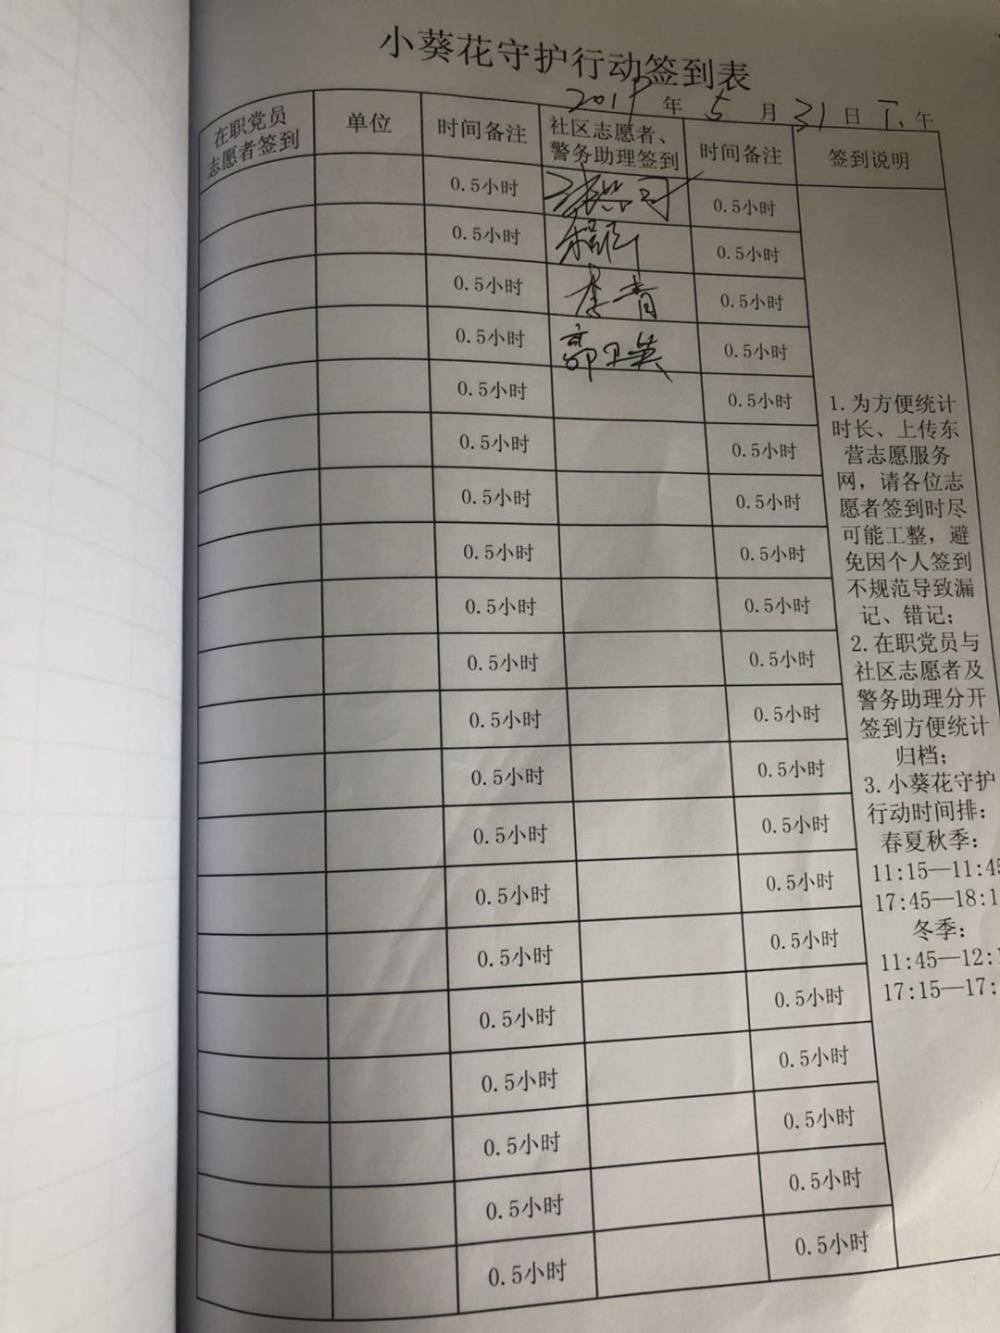 小葵花守护行动签到表
2019年5月31日下午
在职党员
志愿者签到
单位
时间备注
社区志愿者、
警务助理签到
时间备注
签到说明
0.5小时
0.5小时
0.5小时
0.5小时
0.5小时 李青 0.5小时
0.5小时 郭卫英 0.5小时
0.5小时
0.5小时
0.5小时
0.5小时
0.5小时
0.5小时
0.5小时
0.5小时
0.5小时
0.5小时
0.5小时
0.5小时
0.5小时
0.5小时
0.5小时
0.5小时
0.5小时
0.5小时
0.5小时
0.5小时
0.5小时
0.5小时
0.5小时
0.5小时
0.5小时
0.5小时
0.5小时
0.5小时
0.5小时
0.5小时
1.为方便统计
时长、上传东
营志愿服务
网，请各位志
愿者签到时尽
可能工整，避
免因个人签到
不规范导致漏
记、错记；
2.在职党员与
社区志愿者及
警务助理分开
签到方便统计
归档；
3.小葵花守护
行动时间排：
春夏秋季：
11:15—11:45
17:45—18:1
冬季：
11:45—12:1
17:15—17: